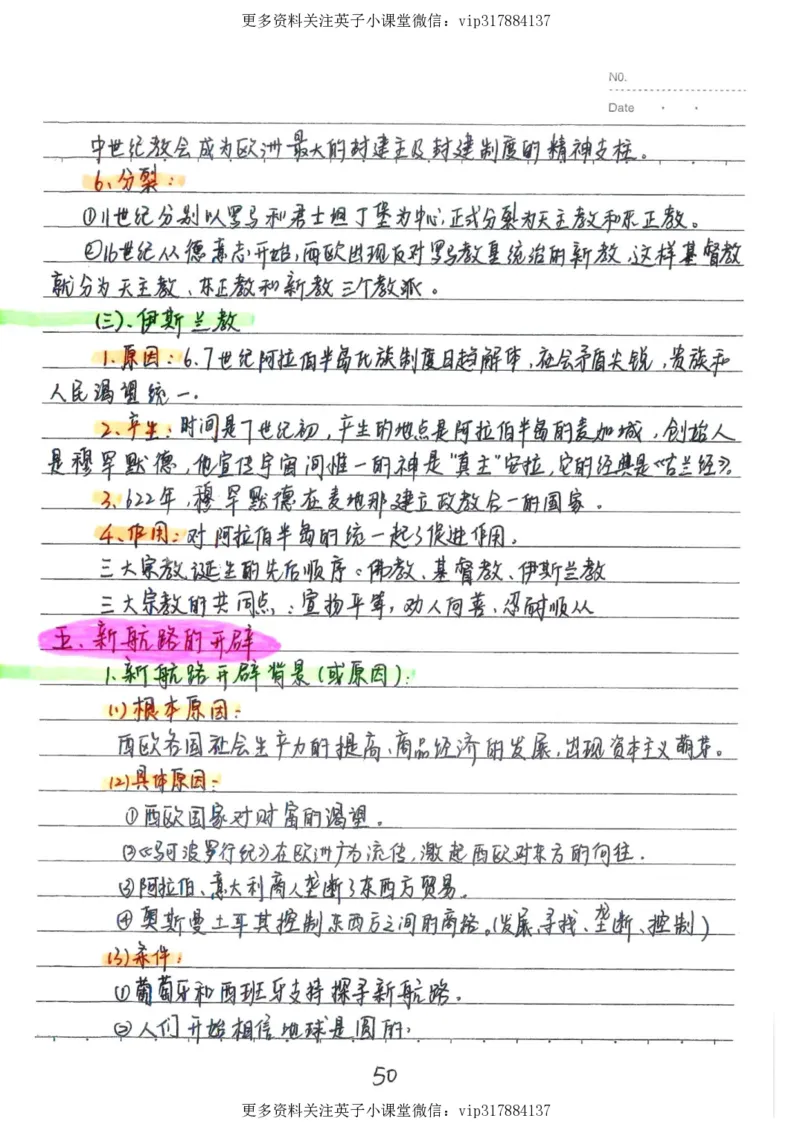 更多资料关注英子小课堂微信：vip317884137
NO.
Date
中世纪教会成为欧洲最大的封建主及封建制度的精神支柱。
6、分裂：
①11世纪分别以罗马和君士坦丁堡为中心,正式分裂为天主教和东正教。
②16世纪从德意志开始,西欧出现反对罗马教皇统治的新教,这样基督教
就分为天主教、东正教和新教三个教派。
(三)、伊斯兰教
1、原因：6、7世纪阿拉伯半岛氏族制度日趋解体,社会矛盾尖锐,贵族和
人民渴望统一.
2、产生：时间是7世纪初,产生的地点是阿拉伯半岛的麦加城,创始人
是穆罕默德,他宣传宇宙间惟一的神是"真主"安拉,它的经典是《古兰经》。
3、622年,穆罕默德在麦地那建立政教合一的国家。
4、作用：对阿拉伯半岛的统一起了促进作用。
三大宗教诞生的先后顺序：佛教、基督教、伊斯兰教
三大宗教的共同点：宣扬平等,劝人向善、忍耐顺从
五、新航路的开辟
1、新航路开辟背景(或原因)：
(1)根本原因：
西欧各国社会生产力的提高、商品经济的发展,出现资本主义萌芽。
(2)具体原因：
①西欧国家对财富的渴望。
②《马可波罗行纪》在欧洲广为流传,激起西欧对东方的向往.
③阿拉伯、意大利商人垄断了东西方贸易.
④奥斯曼土耳其控制东西方之间的商路。(发展、寻找、垄断、控制)
(3)条件：
①葡萄牙和西班牙支持探寻新航路。
②人们开始相信地球是圆的;
50
更多资料关注英子小课堂微信：vip317884137